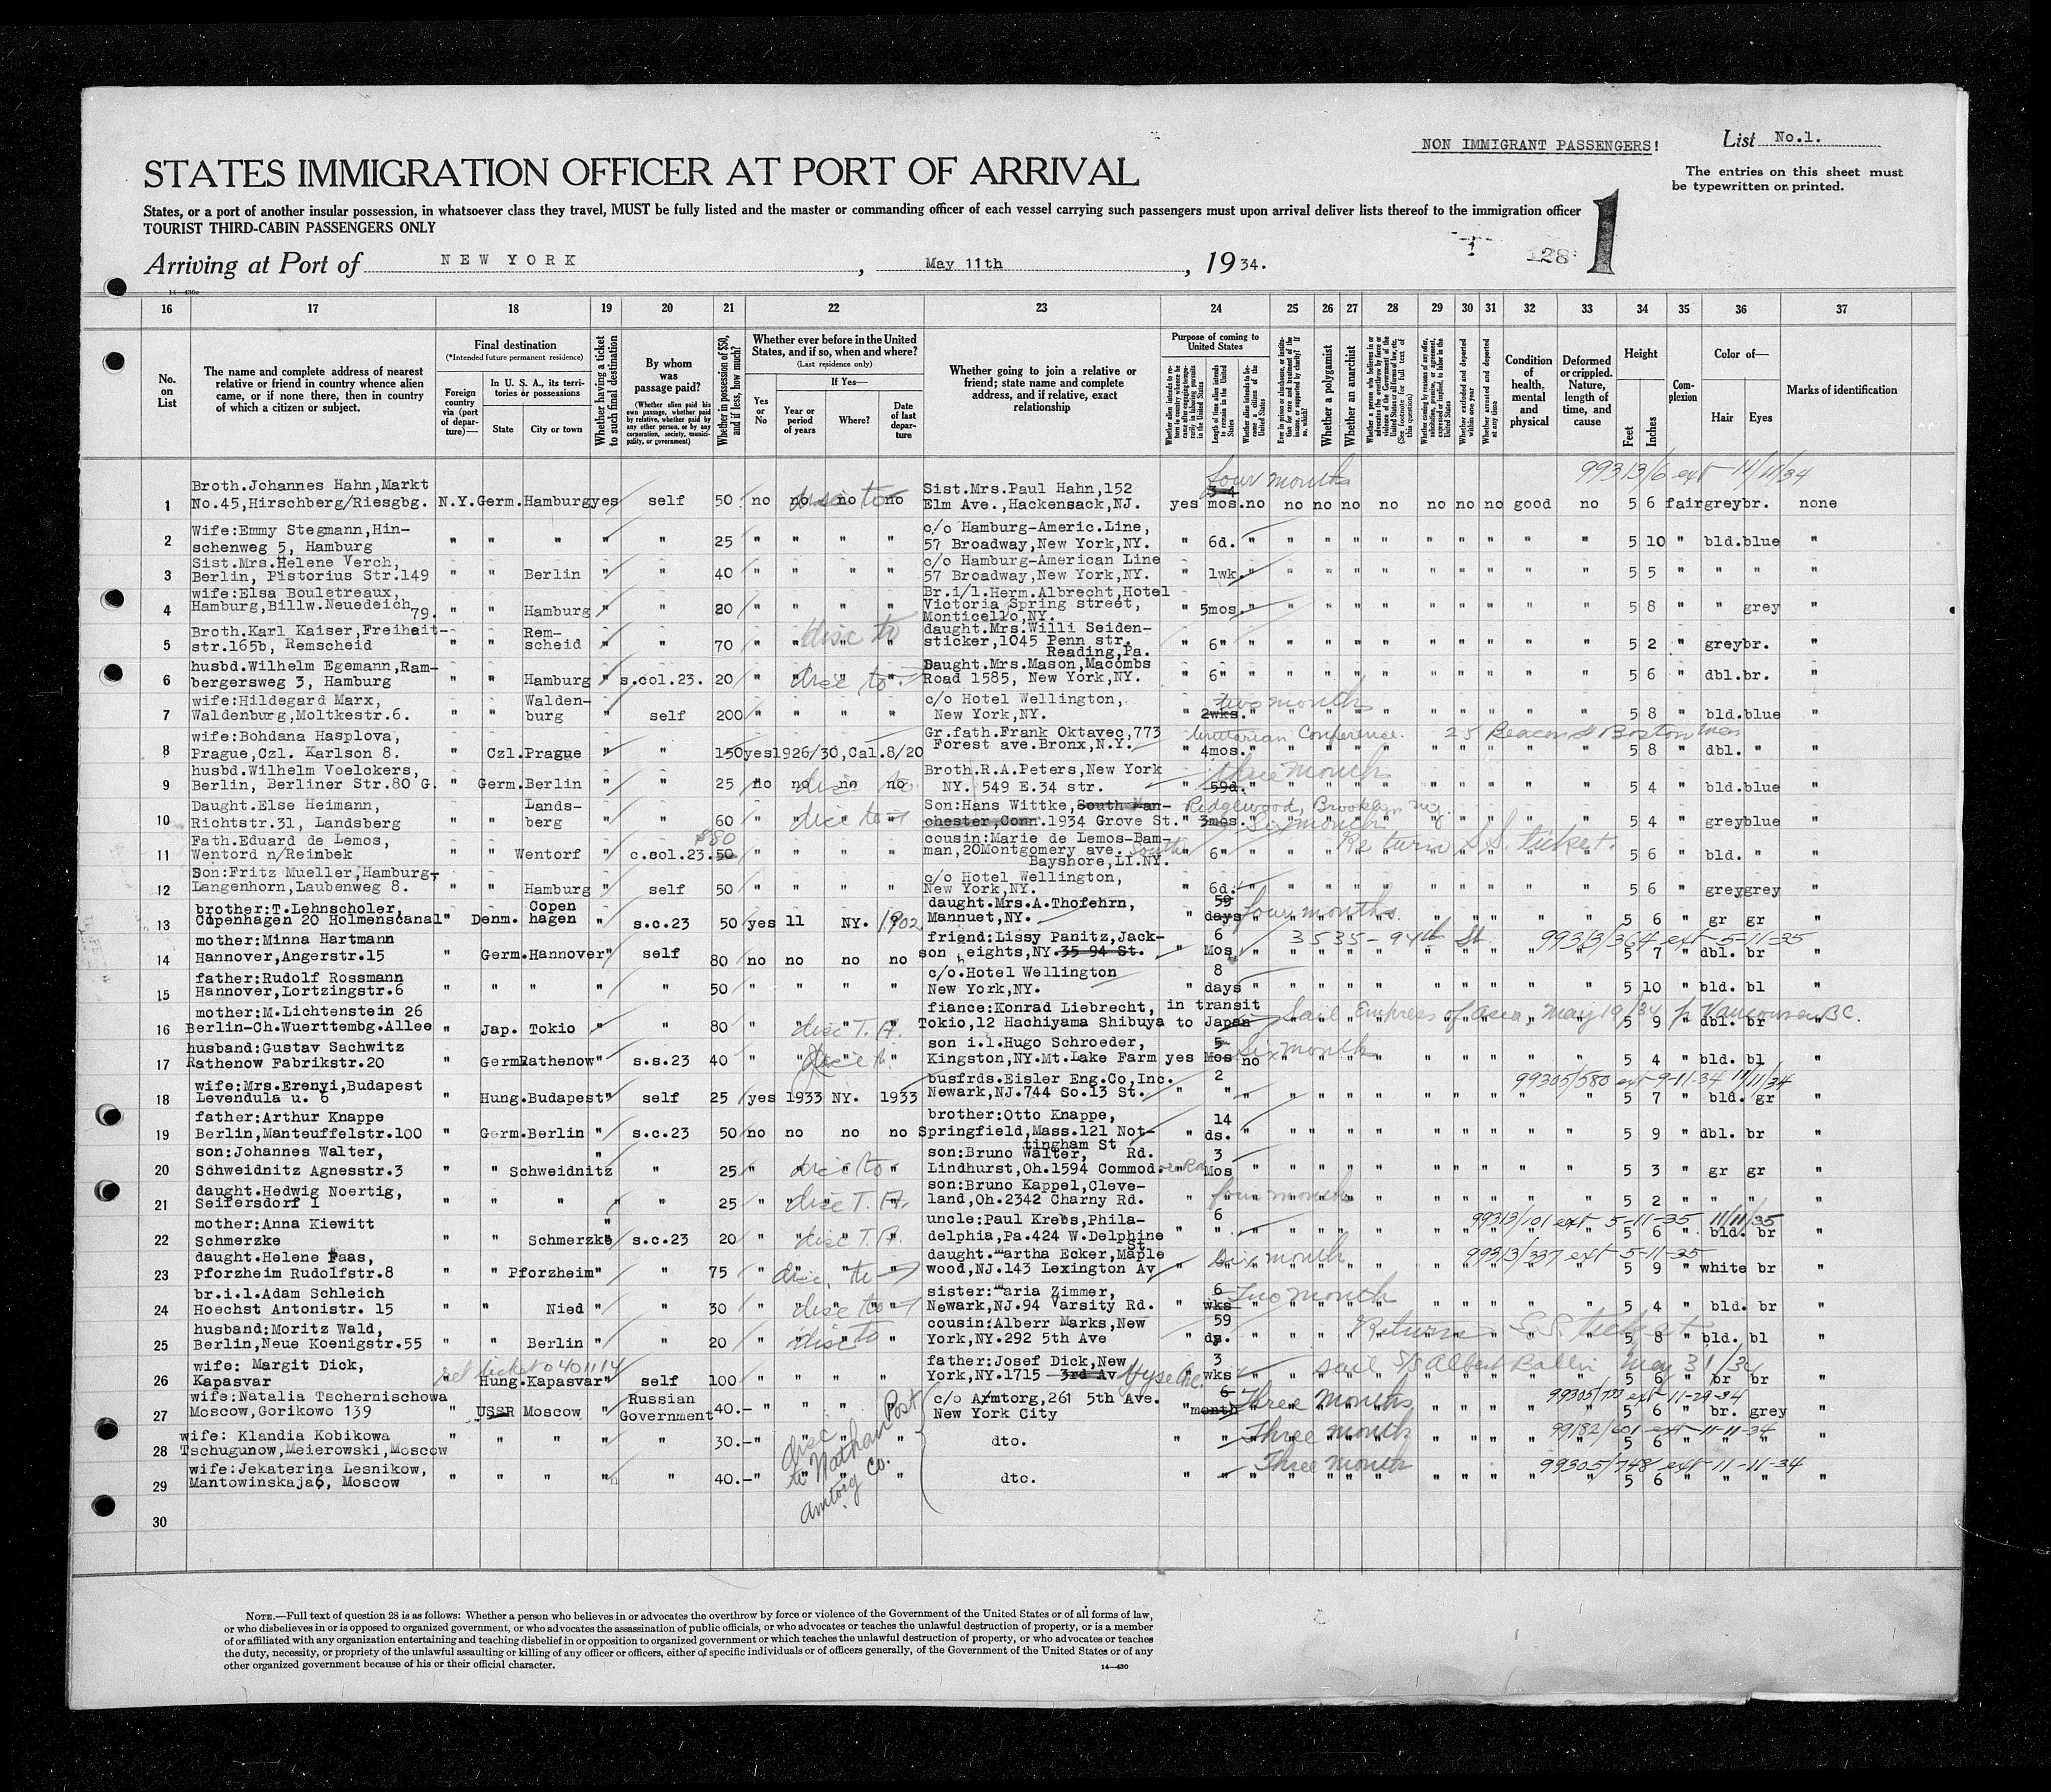 NON IMMIGRANT PASSENGERS!
List No.1.
The entries on this sheet must
be typewritten or printed.
STATES IMMIGRATION OFFICER AT PORT OF ARRIVAL
States, or a port of another insular possession, in whatsoever class they travel, MUST be fully listed and the master or commanding officer of each vessel carrying such passengers must upon arrival deliver lists thereof to the immigration officer
TOURIST THIRD-CABIN PASSENGERS ONLY
1
128
Arriving at Port of NEW YORK, May 11th, 1934.
16 17 18 19 20 21 22 23 24 25 26 27 28 29 30 31 32 33 34 35 36 37
No. on List
The name and complete address of nearest relative or friend in country whence alien came, or if none there, then in country of which a citizen or subject.
Final destination
(*Intended future permanent residence)
Foreign country via (port of departure)—
In U. S. A., its territories or possessions
State
City or town
Whether having a ticket to such final destination
By whom was passage paid?
(Whether alien paid his own passage, whether paid by relative, whether paid by any other person, or by any corporation, society, municipality, or government)
Whether in possession of $50, and if less, how much?
Whether ever before in the United States, and if so, when and where?
(Last residence only)
Yes or No
If Yes—
Year or period of years
Where?
Date of last departure
Whether going to join a relative or friend; state name and complete address, and if relative, exact relationship
Purpose of coming to United States
Length of time alien intends to remain in the United States
Whether alien intends to become a citizen of the United States
Whether a polygamist
Whether an anarchist
Whether excluded and deported within one year
Whether arrested and deported at any time
Condition of health, mental and physical
Deformed or crippled. Nature, length of time, and cause
Height
Feet
Inches
Complexion
Color of—
Hair
Eyes
Marks of identification
four months 99313/6 ext 11/11/34
1 Broth.Johannes Hahn,Markt No.45,Hirschberg/Riesgbg. N.Y. Germ. Hamburg yes self 50 no no no no Sist.Mrs.Paul Hahn,152 Elm Ave.,Hackensack,NJ. yes 3-4 mos. no no no no no no no no good no 5 6 fair grey br. none
2 Wife:Emmy Stegmann,Hinschenweg 5, Hamburg " " " " " 25 " " " " c/o Hamburg-Americ.Line, 57 Broadway,New York,NY. " 6d. " 5 10 " bld. blue "
3 Sist.Mrs.Helene Verch, Berlin, Pistorius Str.149 " " Berlin " " 40 " " " " c/o Hamburg-American Line 57 Broadway,New York,NY. " 1wk. " 5 5 " " " "
4 wife:Elsa Bouletreaux, Hamburg,Billw.Neuedeich 79. " " Hamburg " " 20 " " " " Br.i/l.Herm.Albrecht,Hotel Victoria Spring street, Monticello,NY. " 5mos. " 5 8 " " grey "
5 Broth.Karl Kaiser,Freiheitstr.165b, Remscheid " " Remscheid " " 70 " " " " disc to daught.Mrs.Willi Seidensticker,1045 Penn str. Reading,Pa. " 6" " 5 2 " grey br. "
6 husbd.Wilhelm Egemann,Rambergersweg 3, Hamburg " " Hamburg " s.col.23. 20 " disc to Daught.Mrs.Mason,Macombs Road 1585, New York,NY. " 6" " 5 6 " dbl. br. "
7 wife:Hildegard Marx, Waldenburg,Moltkestr.6. " " Waldenburg " self 200 " " " " c/o Hotel Wellington, New York,NY. " 2wks. two month " 5 8 " bld. blue "
8 wife:Bohdana Hasplova, Prague,Czl. Karlson 8. " Czl. Prague " " 150 yes 1926/30,Cal.8/20 Gr.fath.Frank Oktavec,773 Forest ave.Bronx,N.Y. " 4mos. Unitarian Conference. 25 Beacon St Boston Mass " 5 8 " dbl. " "
9 husbd.Wilhelm Voelckers, Berlin, Berliner Str.80 G. " Germ. Berlin " " 25 no no no no Broth.R.A.Peters,New York NY. 549 E.34 str. " 59d. three month " 5 4 " bld. blue "
10 Daught.Else Heimann, Richtstr.31, Landsberg " " Landsberg " " 60 " disc to Son:Hans Wittke,South Manchester,Conn.1934 Grove St. Ridgewood, Brooklyn ny. " 3mos. Six month " 5 4 " grey blue "
11 Fath.Eduard de Lemos, Wentord n/Reinbek " " Wentorf " c.col.23. 50 $80 " " " " cousin:Marie de Lemos-Bamman,20Montgomery ave. South Bayshore,LI.NY. " 6" Return S.S. ticket. 5 6 " bld. " "
12 Son:Fritz Mueller,Hamburg-Langenhorn,Laubenweg 8. " " Hamburg " self 50 " " " " c/o Hotel Wellington, New York,NY. " 6d. " 5 6 " grey grey "
13 brother:T.Lehnscholer, Copenhagen 20 Holmenscanal " Denm. Copenhagen " s.c.23 50 yes 11 NY. 1902 daught.Mrs.A.Thofehrn, Mannuet,NY. " 59 days four months. 5 6 " gr gr "
14 mother:Minna Hartmann Hannover,Angerstr.15 Germ. Hannover " self 80 no no no no friend:Lissy Panitz,Jackson eights,NY.35 94 St. 6 Mos 3535-94th St. 99313/364 ext-5-11-35 5 7 " dbl. br "
15 father:Rudolf Rossmann Hannover,Lortzingstr.6 " " " " " 50 " " " " c/o.Hotel Wellington New York,NY. 8 days " 5 10 " bld. bl "
16 mother:M.Lichtenstein 26 Berlin-Ch.Wuerttembg.Allee " Jap. Tokio " " 80 " disc T.A. fiance:Konrad Liebrecht, Tokio,12 Hachiyama Shibuya in transit to Japan Sail Empress of Asia, May 19/34 fr Vancouver BC. 5 9 " dbl. br "
17 husband:Gustav Sachwitz Rathenow Fabrikstr.20 " Germ Rathenow " s.s.23 40 " son i.l.Hugo Schroeder, Kingston,NY.Mt.Lake Farm yes 5 Mos no Six month 5 4 " bld. bl "
18 wife:Mrs.Erenyi,Budapest Levendula u. 6 " Hung. Budapest " self 25 yes 1933 NY. 1933 busfrds.Eisler Eng.Co,Inc. Newark,NJ.744 So.13 St. 2 " 99305/580 ext-9-11-34 11/11/34 5 7 " bld. gr "
19 father:Arthur Knappe Berlin,Manteuffelstr.100 " Germ. Berlin " s.c.23 50 no no no no brother:Otto Knappe, Springfield,Mass.121 Nottingham St " 14 ds. " 5 9 " dbl. br "
20 son:Johannes Walter, Schweidnitz Agnesstr.3 " " Schweidnitz " " 25 " disc to son:Bruno Walter, Lindhurst,Oh.1594 Commod. Rd. 3 Mos " 5 3 " gr gr "
21 daught.Hedwig Noertig, Seifersdorf 1 " " " " " 25 " disc T.A. son:Bruno Kappel,Cleveland,Oh.2342 Charny Rd. " four month " 5 2 " " " "
22 mother:Anna Kiewitt Schmerzke " " Schmerzke " s.c.23 20 " disc T.A. uncle:Paul Krebs,Philadelphia,Pa.424 W.Delphine St. " 6 " 99313/101 ext 5-11-35 11/11/35 5 6 " bld. br "
23 daught.Helene Faas, Pforzheim Rudolfstr.8 " " Pforzheim " " 75 " disc. to daught.martha Ecker,Maple wood,NJ.143 Lexington Av " six month 99313/337 ext-5-11-35 5 9 " white br "
24 br.i.l.Adam Schleich Hoechst Antonistr. 15 " " Nied " " 30 " disc to sister:maria Zimmer, Newark,NJ.94 Varsity Rd. " 6 wks Two month 5 4 " bld. br "
25 husband:Moritz Wald, Berlin,Neue Koenigstr.55 " " Berlin " " 20 " disc to cousin:Alberr Marks,New York,NY.292 5th Ave " 59 ds. Return S.S. ticket 5 8 " bld. bl "
26 wife: Margit Dick, Kapasvar ret ticket 0401114 Hung. Kapasvar " self 100 " " " " father:Josef Dick,New York,NY.1715 3rd Av Vyse Ave. 3 wks sail S/S Albert Ballin May 31/34 5 6 " br br "
27 wife:Natalia Tschernischowa Moscow,Gorikowo 139 " USSR Moscow " Russian Government 40.- " " " " c/o Amtorg,261 5th Ave. New York City " 6 month Three months 99305/700 ext-11-29-34 5 6 " br. grey "
28 wife: Klandia Kobikowa Tschugunow,Meierowski,Moscow " " " " " 30.- " disc to Nathan Post Amtorg Co. dto. " " Three month 99182/601 ext-11-11-34 5 6 " " " "
29 wife:Jekaterina Lesnikow, Mantowinskaja6, Moscow " " " " " 40.- " " " " dto. " " Three month 99305/748 ext-11-11-34 5 6 " " " "
30
NOTE.—Full text of question 28 is as follows: Whether a person who believes in or advocates the overthrow by force or violence of the Government of the United States or of all forms of law,
or who disbelieves in or is opposed to organized government, or who advocates the assassination of public officials, or who advocates or teaches the unlawful destruction of property, or is a member
of or affiliated with any organization entertaining and teaching disbelief in or opposition to organized government or which teaches the unlawful destruction of property, or who advocates or teaches
the duty, necessity, or propriety of the unlawful assaulting or killing of any officer or officers, either of specific individuals or of officers generally, of the Government of the United States or of any
other organized government because of his or their official character.
14—430